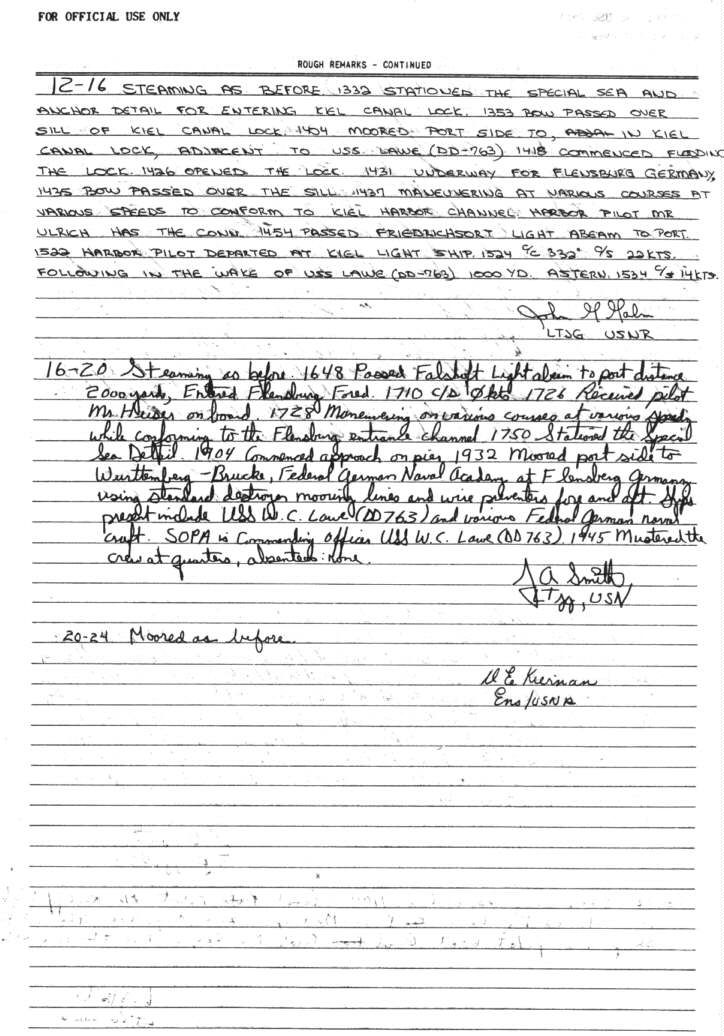 FOR OFFICIAL USE ONLY
ROUGH REMARKS - CONTINUED
12-16 STEAMING AS BEFORE. 1332 STATIONED THE SPECIAL SEA AND
ANCHOR DETAIL FOR ENTERING KIEL CANAL LOCK. 1353 BOW PASSED OVER
SILL OF KIEL CANAL LOCK. 1404 MOORED PORT SIDE TO, IN KIEL
CANAL LOCK, ADJACENT TO USS LAWE (DD-763) 1418 COMMENCED FLOODING
THE LOCK. 1426 OPENED THE LOCK. 1431 UNDERWAY FOR FLENSBURG GERMANY,
1435 BOW PASSED OVER THE SILL. 1437 MANEUVERING AT VARIOUS COURSES AT
VARIOUS SPEEDS TO CONFORM TO KIEL HARBOR CHANNEL; HARBOR PILOT MR
ULRICH HAS THE CONN. 1454 PASSED FRIEDRICHSORT LIGHT ABEAM TO PORT.
1522 HARBOR PILOT DEPARTED AT KIEL LIGHT SHIP. 1524 C/C 332° C/S 22KTS.
FOLLOWING IN THE WAKE OF USS LAWE (DD-763) 1000 YD. ASTERN. 1534 C/S 14KTS.
John G Malm
LTJG USNR
16-20 Steaming as before. 1648 Passed Falshoft Light abeam to port distance
2000 yards, Entered Flensburg Fored. 1710 C/S kts 1726 Received pilot
Mr. on board. 1728 Maneuvering on various courses at various speeds
while conforming to the Flensburg entrance channel 1750 Stationed the Special
Sea Detail. 1904 Commenced approach on pier 1932 Moored port side to
Wurttemberg-Brucke, Federal German Naval Academy at Flensberg Germany
using standard destroyer mooring lines and wire preventers fore and aft. Ships
present include USS W.C. Lawe (DD763) and various Federal German naval
craft. SOPA is Commanding Officer USS W.C. Lawe (DD 763). 1945 Mustered the
crew at quarters, absentees: none.
J A Smith
LTjg, USN
20-24 Moored as before.
W E Kiernan
Ens/USNR